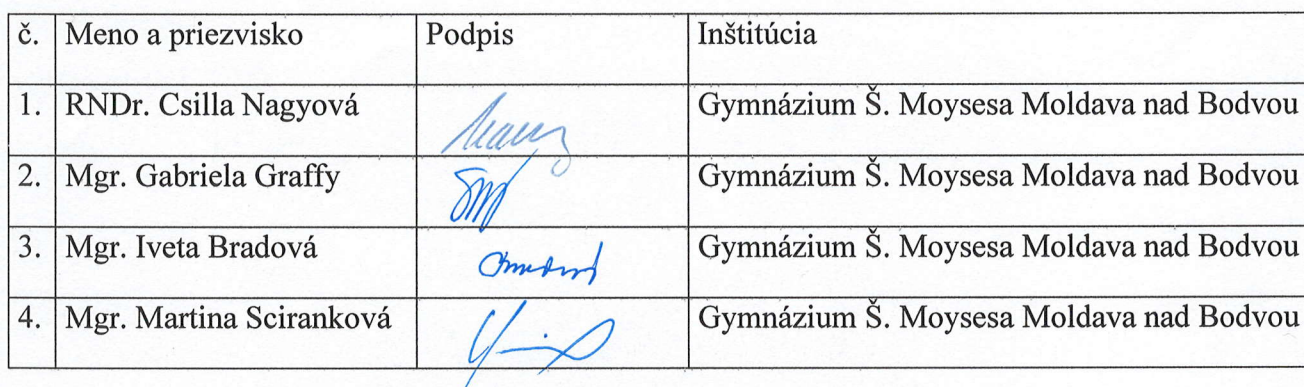 č. Meno a priezvisko Podpis Inštitúcia
1. RNDr. Csilla Nagyová Gymnázium Š. Moysesa Moldava nad Bodvou
2. Mgr. Gabriela Graffy Gymnázium Š. Moysesa Moldava nad Bodvou
3. Mgr. Iveta Bradová Gymnázium Š. Moysesa Moldava nad Bodvou
4. Mgr. Martina Sciranková Gymnázium Š. Moysesa Moldava nad Bodvou